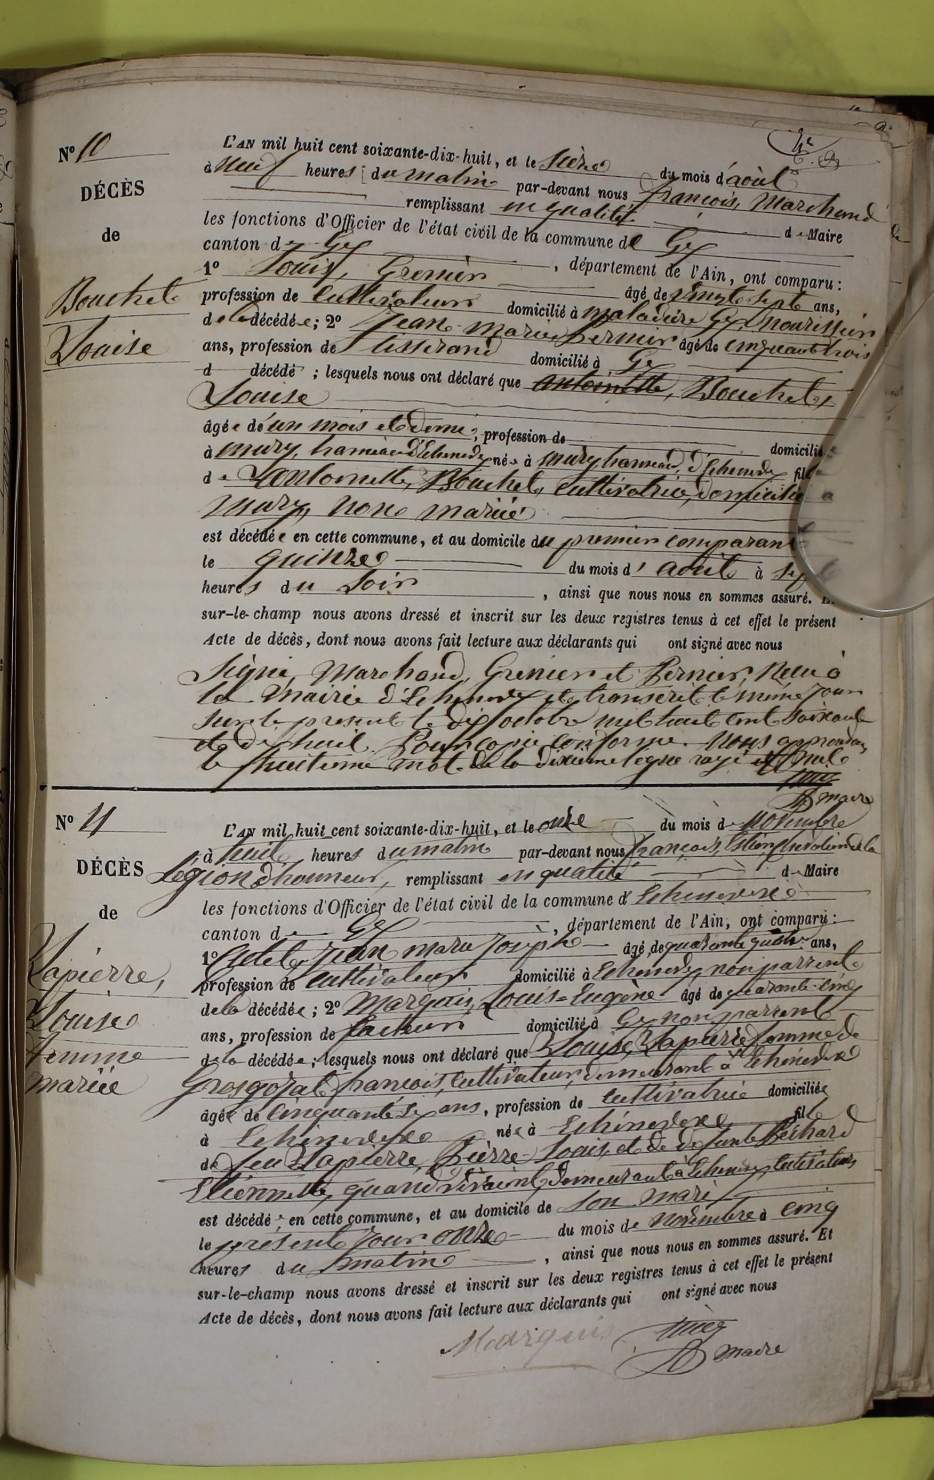 N° 10
DÉCÈS
de
Bouchet
Louise
L'AN mil huit cent soixante-dix-huit, et le seize du mois d'août
à neuf heures du matin par-devant nous françois, Marchand
remplissant en qualité de Maire
les fonctions d'Officier de l'état civil de la commune de Gex
canton de Gex, département de l'Ain, ont comparu:
1° Louis, Grenier âgé de vingt-sept ans,
profession de cultivateur domicilié à maladière Gex nourissier
de la décédée; 2° Jean-Marie Pernier âgé de cinquante trois
ans, profession de tisserand domicilié à Gex
d décédé ; lesquels nous ont déclaré que antoinette, Bouchet
Louise
âgée de un mois et demi, profession de domicilié
à mury, hameau d'Echenevex née à mury hameau d'Echenevex fille
de Lantoinette, Bouchet, cultivatrice, domicilié a
Mury, none mariée
est décédée en cette commune, et au domicile du premier comparant
le quinze du mois d'août à sept
heures du soir, ainsi que nous nous en sommes assuré. Et
sur-le-champ nous avons dressé et inscrit sur les deux registres tenus à cet effet le présent
Acte de décès, dont nous avons fait lecture aux déclarants qui ont signé avec nous
Signé, Marchand, Grenier et Pernier, Reçu à
la Mairie d'Echenevex et transcrit le même jour
sur le present le dix octobre mil huit cent soixante
et dix huit. Pour copie conforme. Nous approuvons
le huitième mot de la dixième ligne rayé nul
maire
N° 11
DÉCÈS
de
Lapierre,
Louise
femme
mariée
L'AN mil huit cent soixante-dix-huit, et le onze du mois de Novembre
à huit heures du matin par-devant nous françois, chevalier de la
Légion d'honneur, remplissant en qualité de Maire
les fonctions d'Officier de l'état civil de la commune d'Echenevex
canton de Gex, département de l'Ain, ont comparu:
1° jean marie joseph âgé de quarante quatre ans,
profession de cultivateur domicilié à Echenevex non parrent
de la décédée; 2° Marquis, Louis-Eugène âgé de quarante-cinq
ans, profession de facteur domicilié à Gex non parrent
de la décédée; lesquels nous ont déclaré que Louise, Lapierre femme de
Grosgojat françois, cultivateur, demeurant à Echenevex
âgée de cinquante six ans, profession de cultivatrice domiciliée
à Echenevexe née à Echenevexe fille
de feu Lapierre, Pierre-Louis et de défunte Béchard
Etiennette, quand vivaient demeurant à Echenevex, cultivateurs
est décédée en cette commune, et au domicile de son mari
le présent jour onze du mois de Novembre à cinq
heures du matin, ainsi que nous nous en sommes assuré. Et
sur-le-champ nous avons dressé et inscrit sur les deux registres tenus à cet effet le présent
Acte de décès, dont nous avons fait lecture aux déclarants qui ont signé avec nous
Marquis
maire